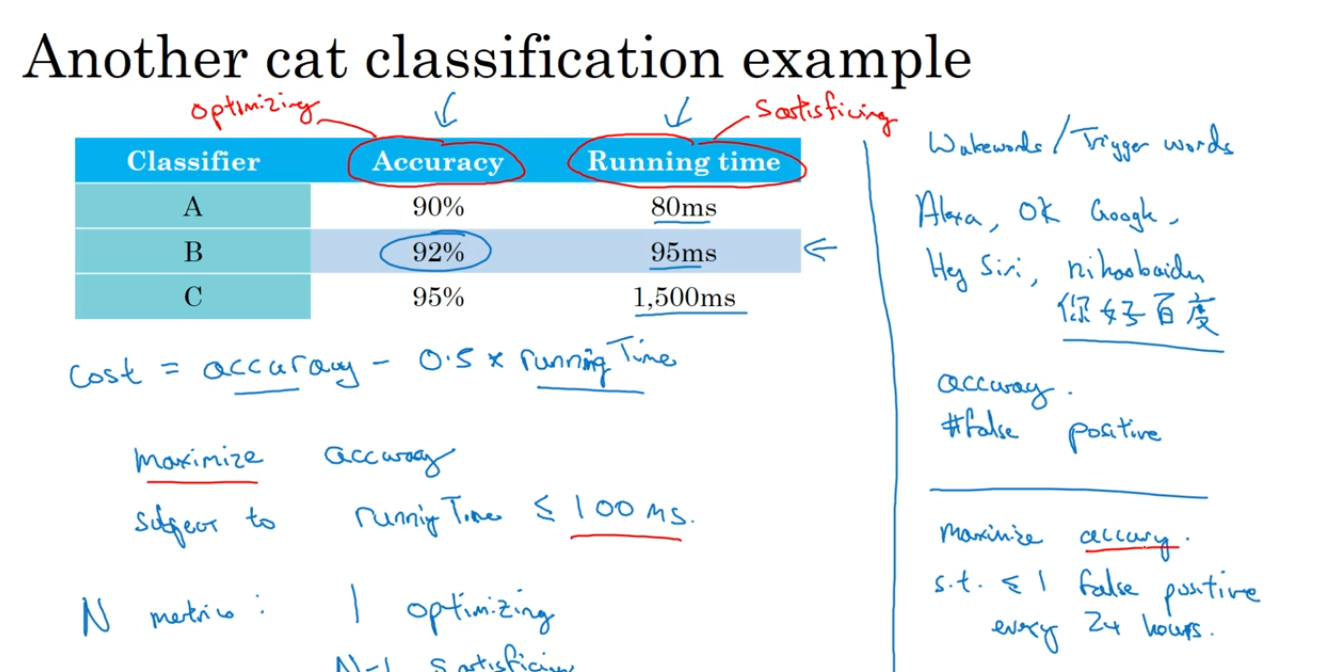 Another cat classification example
optimizing
Satisficing
Classifier Accuracy Running time
A 90% 80ms
B 92% 95ms
C 95% 1,500ms
Cost = accuracy - 0.5 x running Time
maximize accuracy
subject to running Time ≤ 100 ms.
N metrics: 1 optimizing
N-1 Satisficing
Wakewords / Trigger words
Alexa, OK Google,
Hey Siri, nihaobaidu
你好百度
accuracy.
#false positive
maximize accuracy.
s.t. ≤ 1 false positive
every 24 hours.